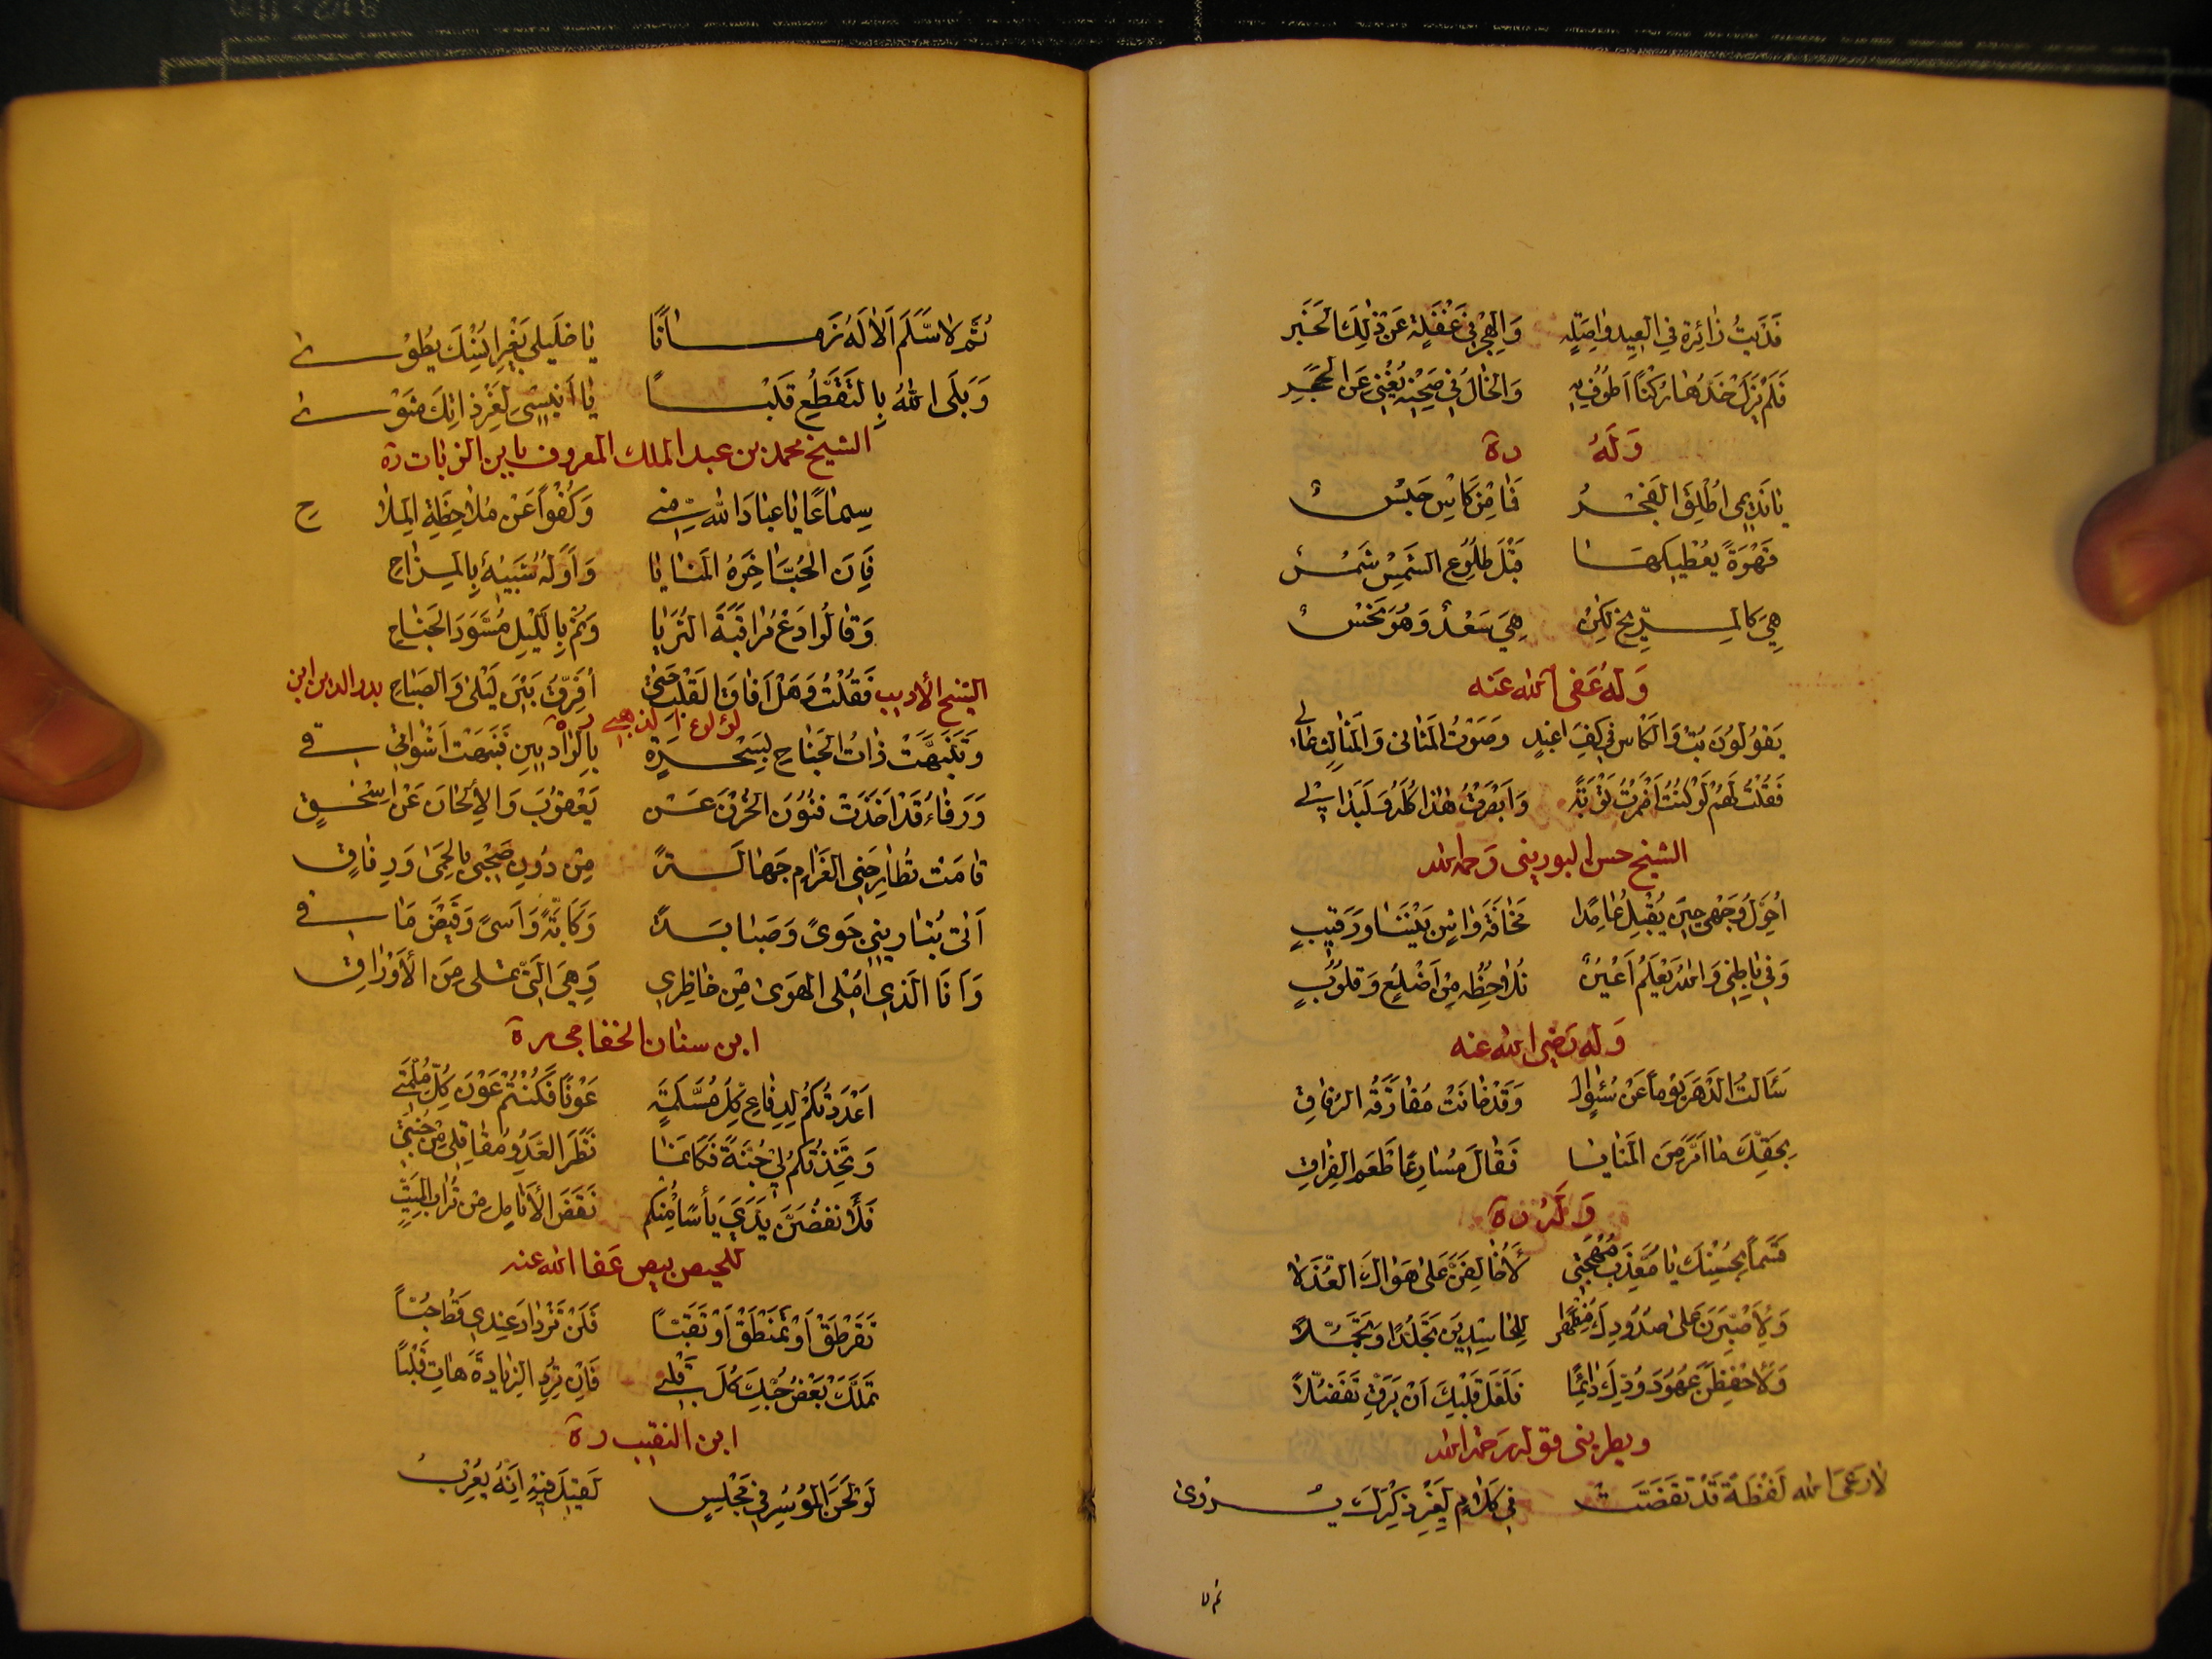 فَدَيتُ زائِرة فِي العِيدِ واصِلةٍ وَالهَجرُ فِي غَفلَةٍ عَن ذلِكَ الخَبَرِ
فَلَم يَزَل خَدُّها رُكنًا اَطُوفُ بِهِ وَالخالُ فِي صَحنِهِ يُغنِي عَنِ الحَجَرِ
وَلَهُ رة
يا نَديمي اُطلِقَ الفَجرُ فَما مِن كَاسِ حَبسُ
قَهوَةً يُعطِيكَها قَبلَ طُلُوعِ الشَمسِ شَمسُ
هِيَ كَالمِرِّيخِ لَكِن هِيَ سَعدٌ وَهُوَ نَحسُ
وَلَهُ عَفى الله عَنه
يَقولُونَ تُب وَالكَاسُ فِي كَفِّ اغيَدٍ وصَوتُ المَثاني وَالمَثالِثِ عالي
فَقُلتُ لَهُم لَو كُنتُ اَضمَرتُ تَوبَةً وَاَبصَرتُ هذا كُلَّهُ لَبَدا لي
الشيخ حسن البوريني رحمه الله
اُحَوِّلُ وَجهي حِينَ يُقبِلُ عامِدًا مَخافَةَ واشٍ بَينَنا وَرَقيبِ
وَفي باطِني وَاللهُ يَعلَمُ اَعيُنٌ تُلاحِظُه مِن اَضلُعٍ وَقُلوُبِ
وَله رَضِي الله عنه
سَئَالتُ الدَهرَ يَومًا عَن سُئوالٍ وَقَد حانَت مُفارَقَةُ الرِفاقِ
بِحَقِّكَ ما اَمَرُّ مِنَ المَنايا فَقالَ مُسارِعًا طَعمُ الفِراقِ
وَلَهُ رة
قَسَمًا بِحُسنِكَ يا مُعَذِّبَ مُهجَتي لَأُخالِفَنَّ عَلى هَواكَ العُذَّلا
وَلأَصبِرَنَّ عَلى صُدُودِكَ مُظهِرًا لِلحاسِدِينَ تَجَلُّدًا وَتَجَمُّلاً
وَلأَحفِظَنَّ عُهُودَ وُدِّكَ دائِمًا فَلَعَلَّ قَلبَكَ اَن يَرِقَّ تَفَضُّلاً
ويطربني قوله رحمه الله
لا رَعَى الله لَفظَةً قَد تقَضَّت فِي كَلامٍ لِغَيرِ ذِكرِكَ يُروى
ثم لا
ثُمَّ لا سَلَّمَ اَلالَهُ زَمانًا يا خَليلي بَغيرِ اُنسِكَ يُطوى
وَبَلَى اللهُ بِالتَقَطُّعِ قَلبًا يا اَنيسي لَغَيرِ ذاتِكَ مَثوى
الشيخ محمد بن عبد الملك المعروف بابن الزيات رة
سِماعًا يا عِبادَ الله مِنّي وَكُفّوا عَن مُلاحِظَةِ المِلاح
فَاِنَّ الحُبَّ اخِرُهُ المَنايا وَاَوَّلُهُ شَبيهٌ بِالمِزاحِ
وَقالُوا دَع مُراقَبَةَ الثُرَيّا وَنَم بِاللَيلِ مُسوَدَّ الجَناحِ
فَقُلتُ وَهَل اَفاقَ القَلبُ حَتّى اُفَرِّقَ بَينَ لَيلى وَالصَباحِ
الشيخ الأديب بدر الدين ابن لؤلوء الذهبي رة
وَتَنَبَّهَت ذاتُ الجَناحِ بِسَحرَةٍ بِالوادِيَينِ فَنَبَّهَت اَشواقي
وَرقاءُ قَد اَخَذَت فُنُونَ الحُزنِ عَن يَعقُوبَ وَالاَلحانَ عَن اِسحٰقٍ
قامَت تُطارِحُني الغَرام جَهالَةً مِن دُونِ صَحبي بِالحِمى وَرِفاقي
اَنّى تُبارِيني جَوىً وَصَبابَةً وَكَآبَةً وَاَسىً وَفَيضَ مَاقي
وَاَنَا الَّذي اُملي الهَوى مِن خاطِري وَهِيَ الَّتي تملي مِنَ الأَوراقِ
ابن سنان الخفاجي رة
اَعدَدتُكُم لِدِفاعِ كُلِّ مُلِمَّةٍ عَونًا فَكُنتُم عَونَ كُلِّ مُلِمَّةِ
وَتَخِذتُكُم لي جُنَّةً فَكَاَنَّما نَظَرَ العَدُو مَقاتِلي مِن جُنَّتي
فَلأَنفُضَنَّ يَدَيَّ يَأسًا مِنكُم نَفضَ الأَنامِلِ مِن تُرابِ المَيِّتِ
للحيص بيص عفا الله عنه
تَقَرطَق اَو تَمَنطَق اَو تَقَبّا فَلَن تَزدادَ عِندي قَطُّ حُبّاً
تَمَلَّكَ بَعضُ حُبِّكَ كُلَّ قَلبي فَاِن تُرِدِ الزِيادَةَ هاتِ قَلبًا
ابن النقيب رة
لَو لَحَنَ المُوسِرُ في مَجلِسٍ لَقيلَ فيهِ اِنَّهُ يُعرِبُ